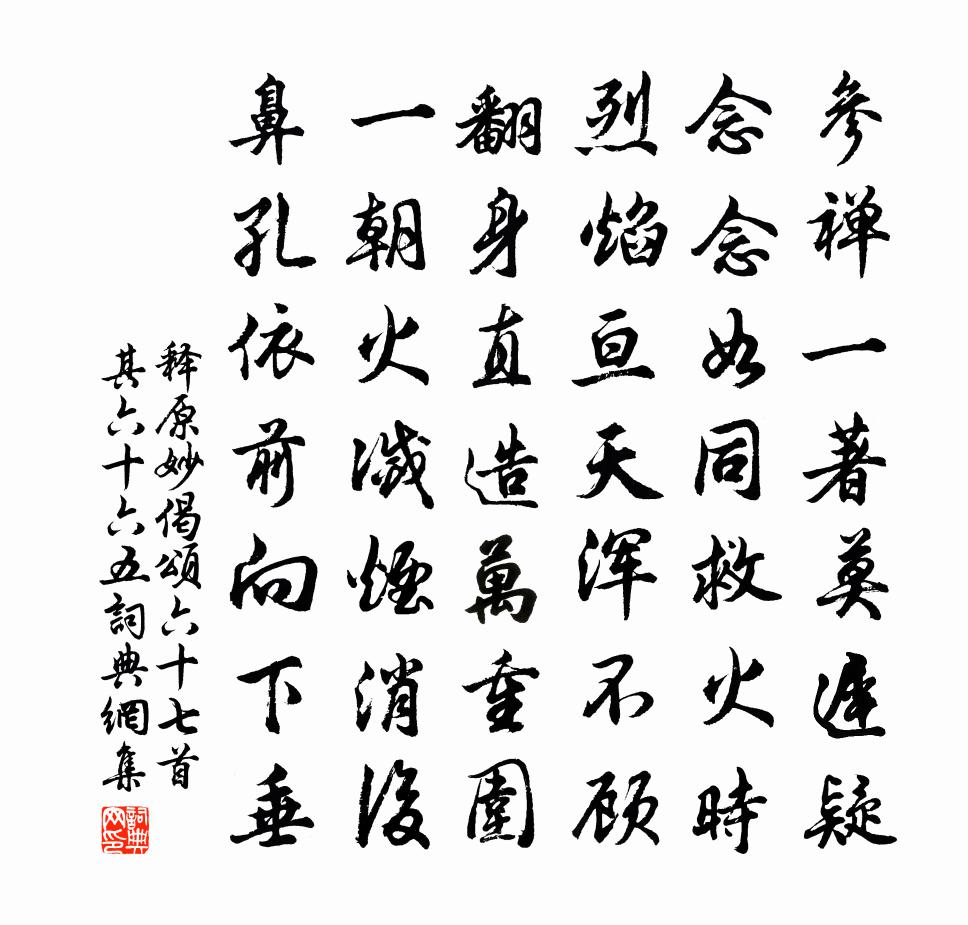 參禅一著莫遲疑
念念如同救火時
烈焰亘天浑不顾
翻身直造萬重圍
一朝火滅煙消後
鼻孔依前向下垂
释原妙偈頌六十七首
其六十六五詞典網集
詞典网印